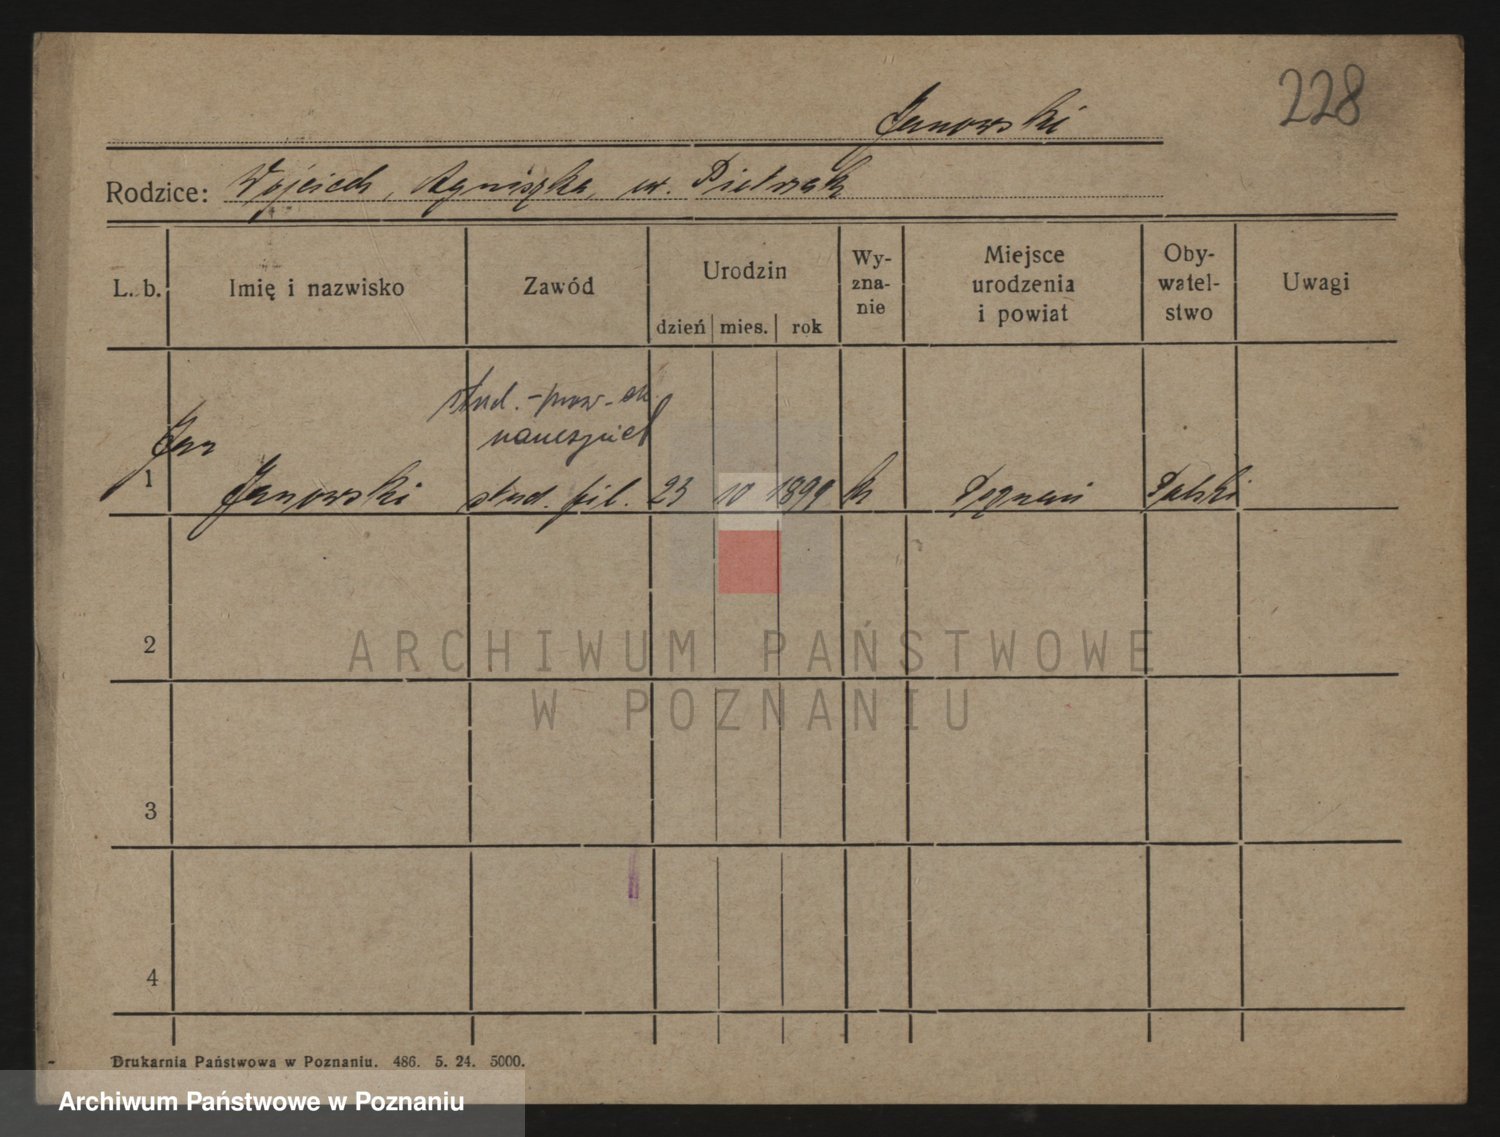 228
Janowski
Rodzice: Wojciech, Agnieszka, ur. Pietrzak
L. b.
Imię i nazwisko
Zawód
Urodzin
dzień mies. rok
Wy-
zna-
nie
Miejsce
urodzenia
i powiat
Oby-
watel-
stwo
Uwagi
stud.
nauczyciel
Jan
1 Janowski stud. fil. 23 10 1899 k Poznań Polski
2
3
4
ARCHIWUM PAŃSTWOWE
W POZNANIU
Drukarnia Państwowa w Poznaniu. 486. 5. 24. 5000.
Archiwum Państwowe w Poznaniu